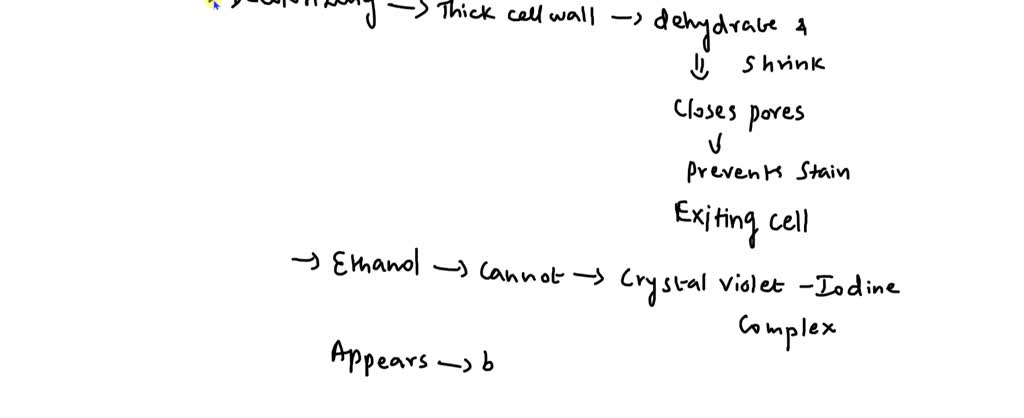 → Thick cell wall → dehydrate &
⇓ Shrink
Closes pores
↓
Prevents Stain
Exiting cell
→ Ethanol → Cannot → Crystal Violet - Iodine
Complex
Appears → b